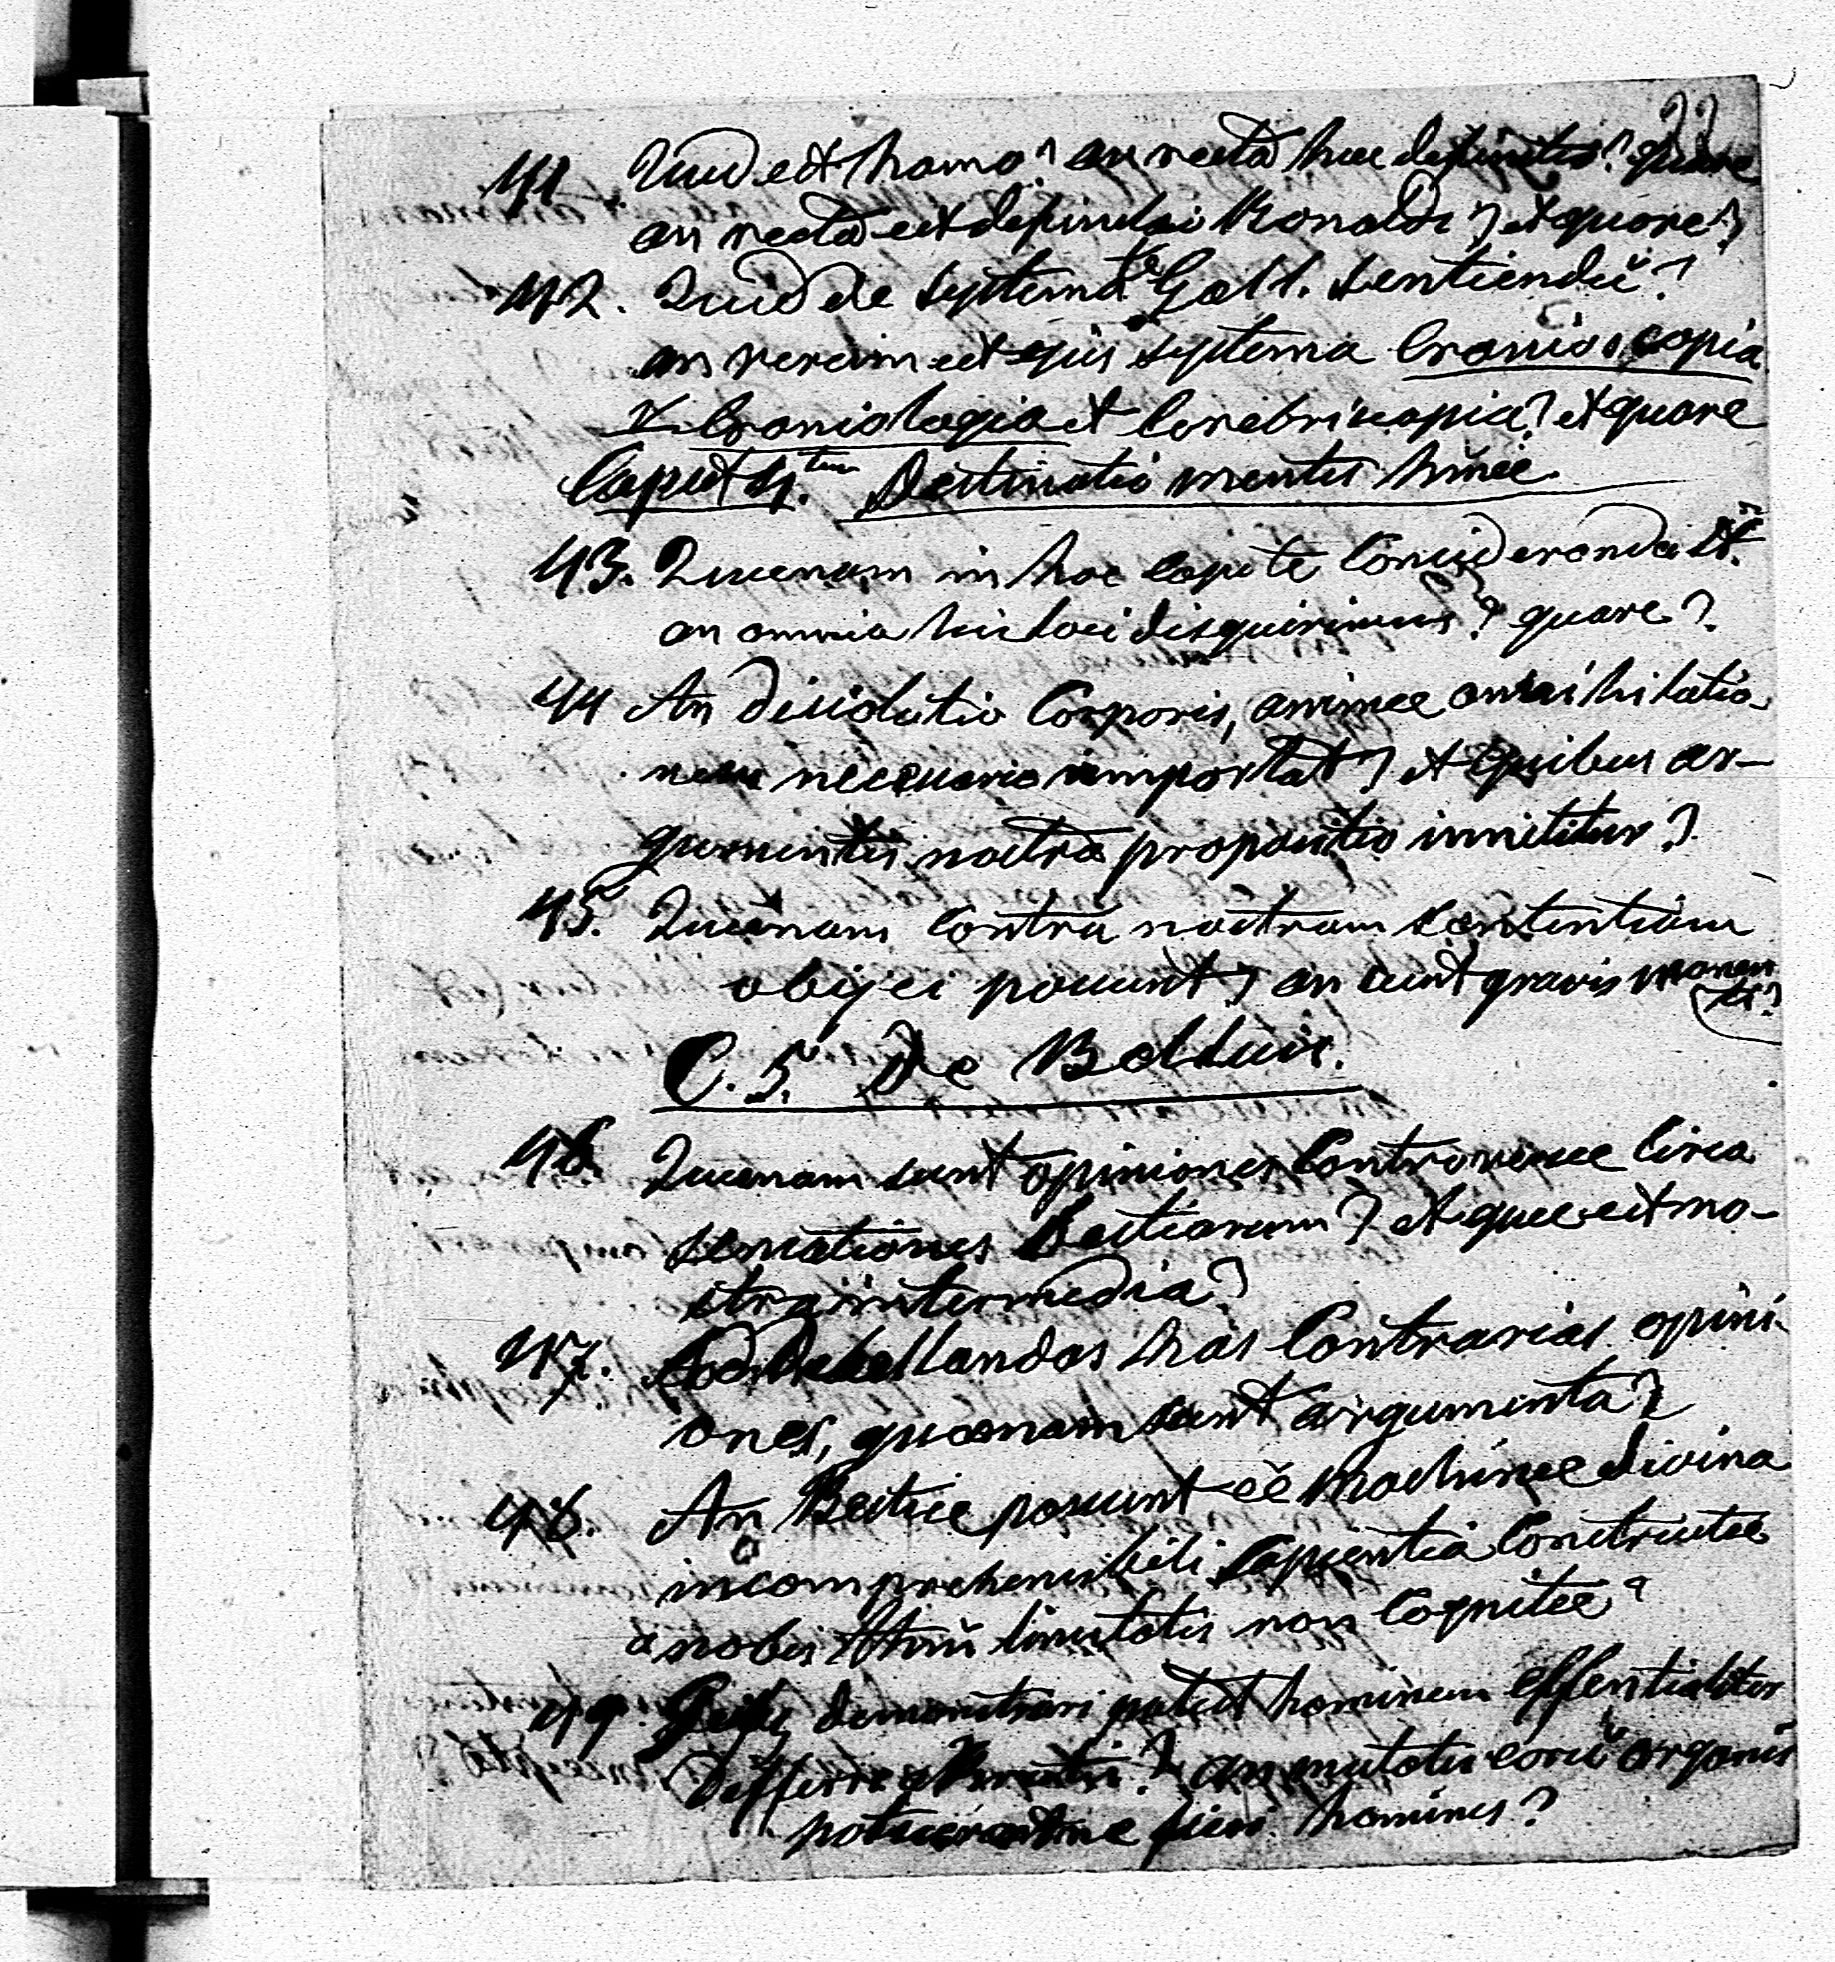 22
41 Quid est homo? an recta hæc definitio? quare
an recta est definitio Bonaldi? et quare?
42. Quid de systemate Gall. sentiendũ?
an verum est ejus systema Cranioscopia
Craniologia et Cerebriscopia? et quare
Caput 4.tum Destinatio mentis hũnæ.
43. Quænam in hoc capite Consideranda st̃?
an omnia hic loci disquirimus? quare?
44 An dissolutio Corporis, animæ annihilatio-
nem necessario importat? et quibus ar-
gumentis nostra propositio innititur?
45. Quænam contra nostram sententiam
objici possunt? an sunt gravis momen
ti?
C. 5. De Belluis.
46. Quænam sunt opiniones Controversæ Circa
sensationes Bestiarum? et quæ est no-
stra intermedia?
47. Ad Debellandas has Contrarias opini-
ones, quænam sunt argumenta?
48. An Bestiæ possunt eẽ Machinæ divina
incomprehensibili sapientia Constructæ
a nobis limitatis non Cognitæ?
49. demonstrari potest hominem essentialiter
Differre a Brutis? an mutatis eorũ organis
fieri homines?